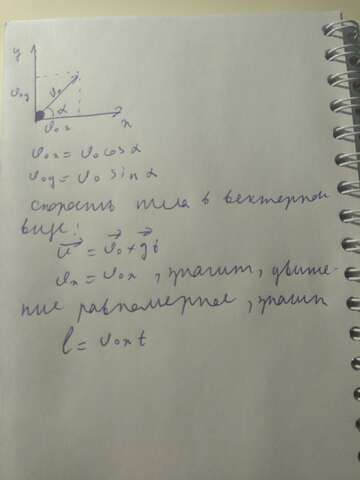 y
v₀y
v₀
α
v₀x
x
v₀x = v₀ cos α
v₀y = v₀ sin α
скорость тела в векторном
виде:
v⃗ = v⃗₀ + g⃗t
vₓ = v₀x, значит, движе-
ние равномерное, значит
l = v₀x t